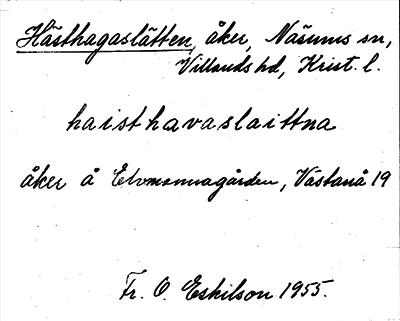 Hästhagaslätten, åker, Näsums sn,
Villands hd, Krist. l.
haisthavaslaittna
åker å Edvmannagården, Västanå 19
Fr. O. Eskilson 1955.